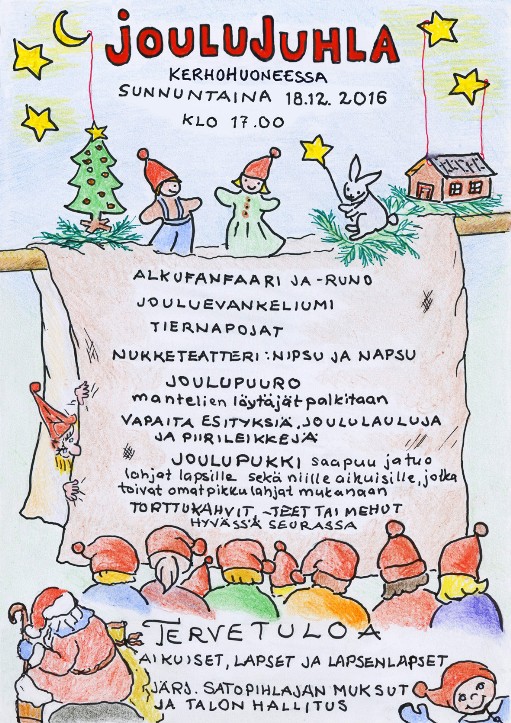 JOULUJUHLA
KERHOHUONEESSA
SUNNUNTAINA 18.12. 2016
KLO 17.00
ALKUFANFAARI JA -RUNO
JOULUEVANKELIUMI
TIERNAPOJAT
NUKKETEATTERI: NIPSU JA NAPSU
JOULUPUURO
mantelien löytäjät palkitaan
VAPAITA ESITYKSIÄ, JOULULAULUJA
JA PIIRILEIKKEJÄ
JOULUPUKKI saapuu ja tuo
lahjat lapsille sekä niille aikuisille, jotka
toivat omat pikku lahjat mukanaan
TORTTUKAHVIT, -TEET TAI MEHUT
HYVÄSSÄ SEURASSA
TERVETULOA
AIKUISET, LAPSET JA LAPSENLAPSET
JÄRJ. SATOPIHLAJAN MUKSUT
JA TALON HALLITUS